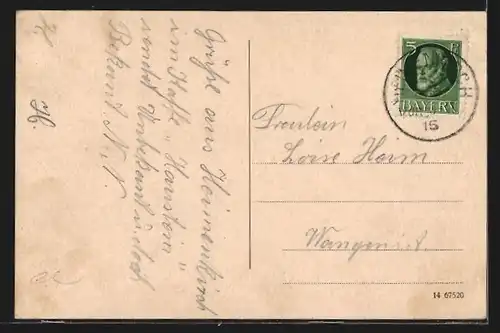 Grüße aus Heimenkirch
im Kaffe „Haustein"
sendet Unbekant u. doch
Bekant N. N.
H.
5
BAYERN
15
Fräulein
Loise Heim
Wangen i. A.
14 67520